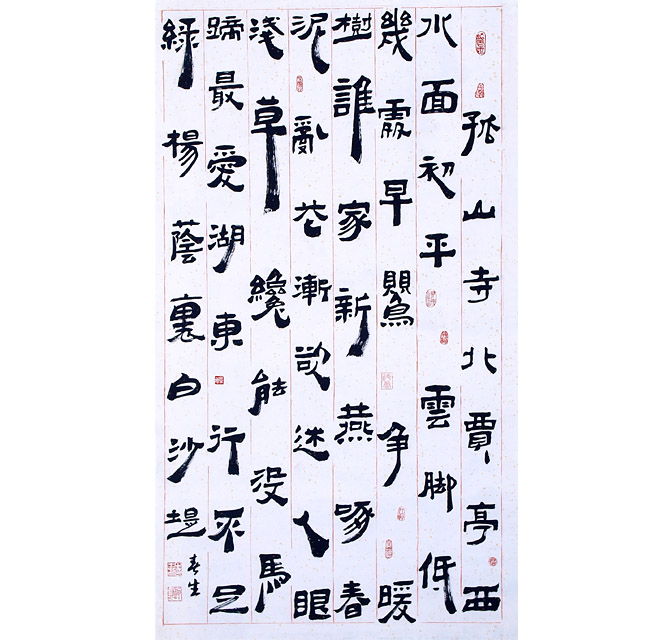 孤山寺北賈亭西
水面初平雲脚低
幾處早鸎争暖
樹誰家新燕啄春
泥亂花漸欲迷人眼
淺草纔能没馬
蹄最愛湖東行不足
綠楊蔭裏白沙堤
春生